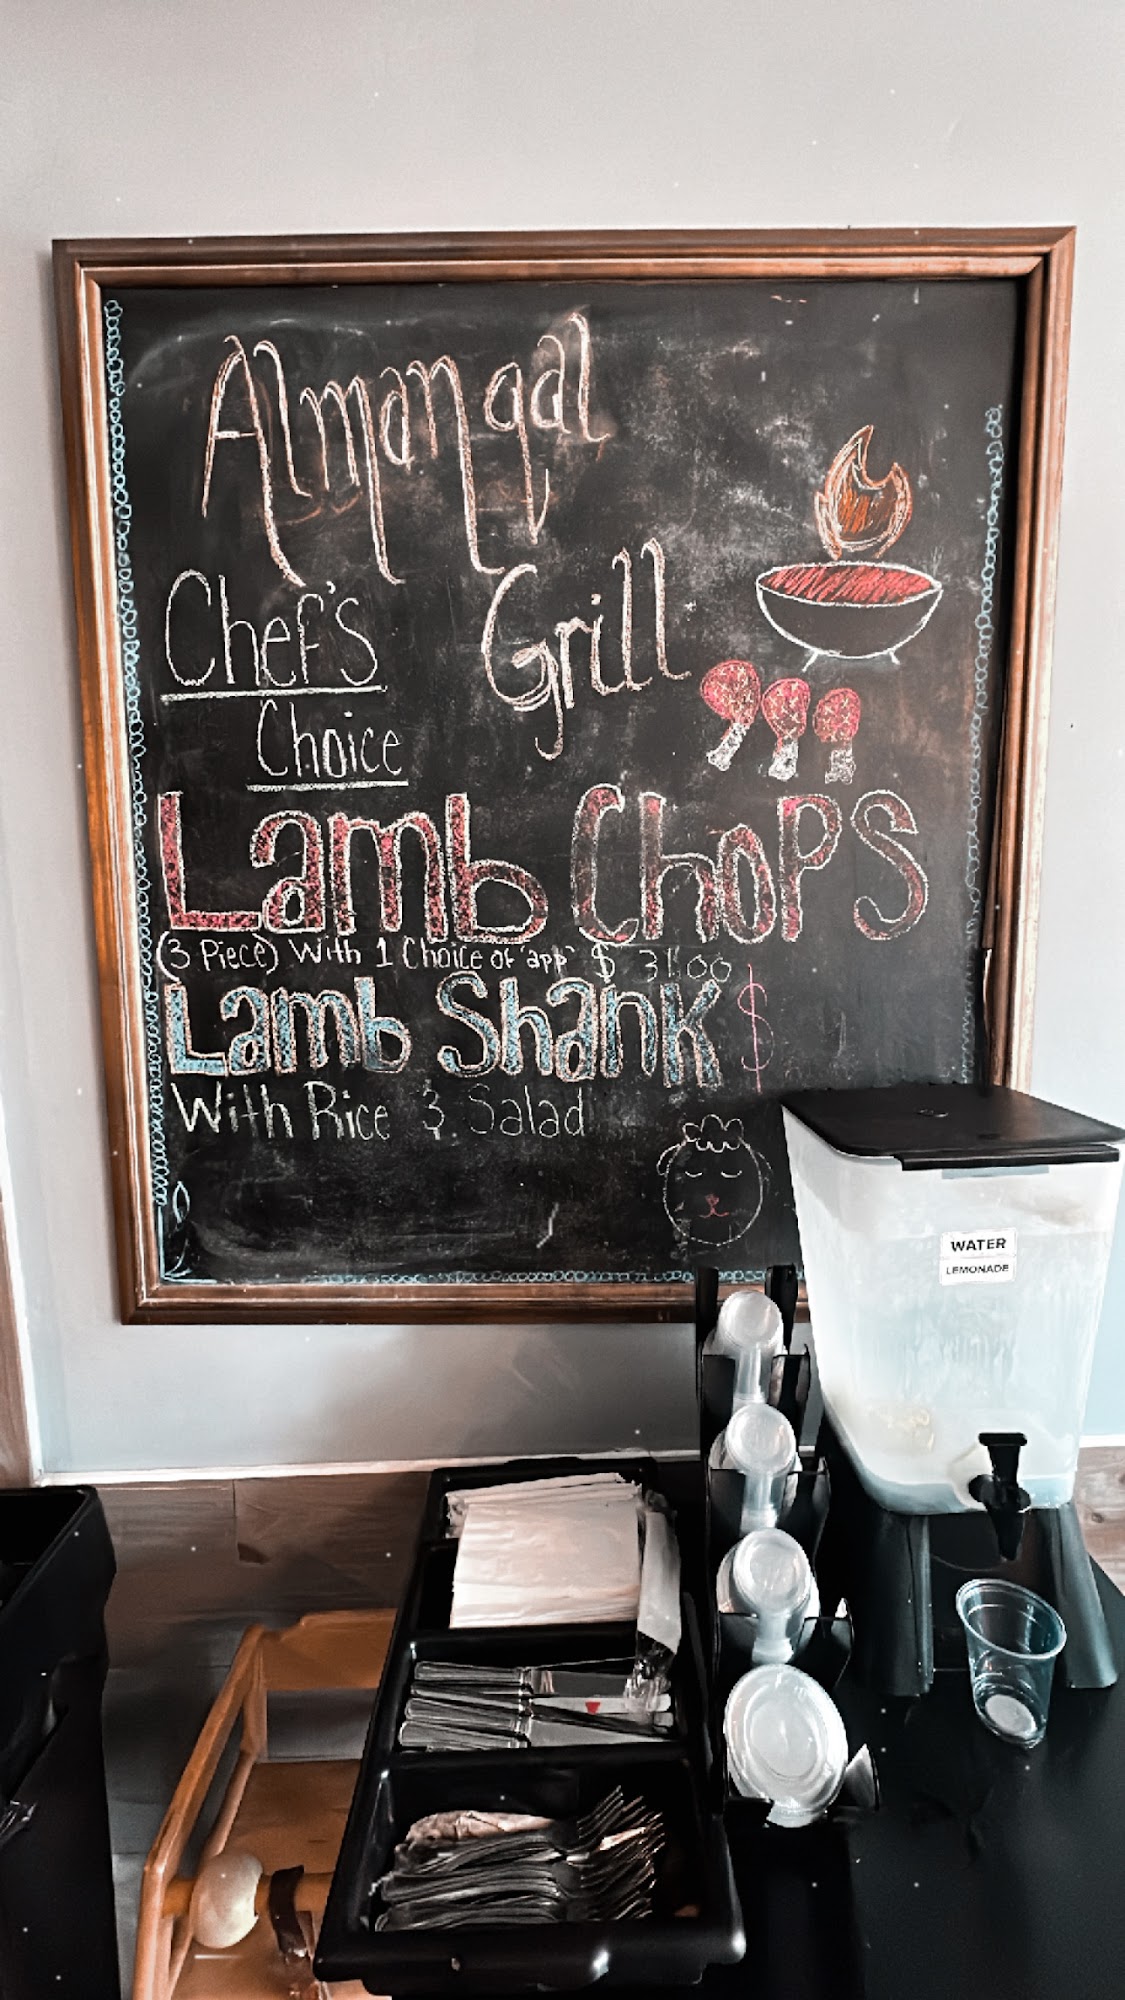 Almanqal
Grill
Chef's
Choice
Lamb Chops
(3 Piece) With 1 Choice of "app" $ 31.00
Lamb Shank $
With Rice & Salad
WATER
LEMONADE